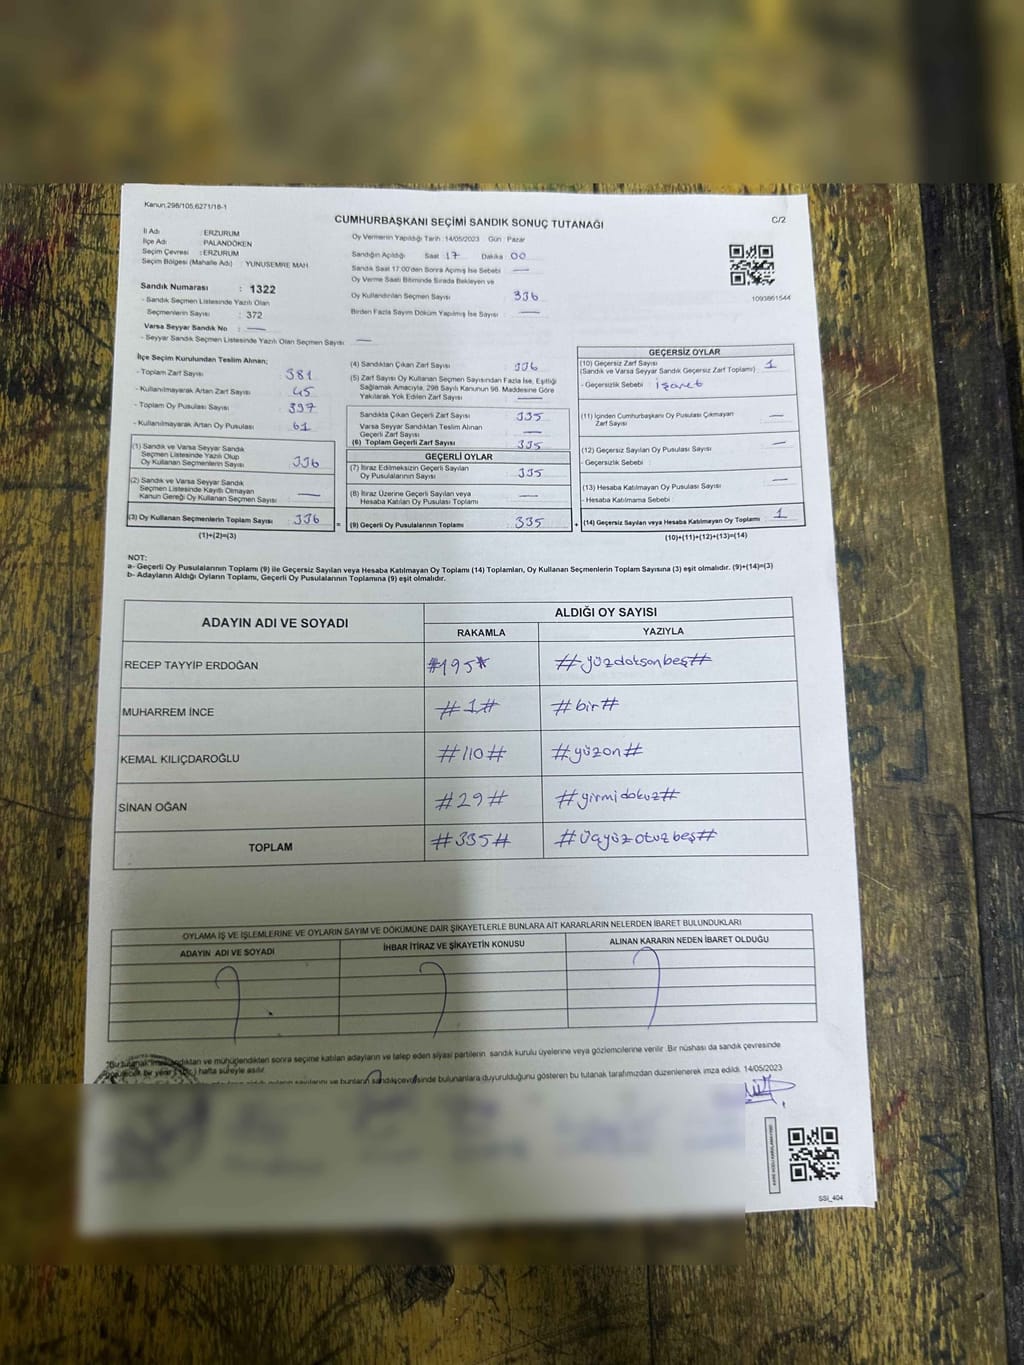 Kanun:298/105,6271/18-1
CUMHURBAŞKANI SEÇİMİ SANDIK SONUÇ TUTANAĞI
C/2
İl Adı : ERZURUM
İlçe Adı : PALANDÖKEN
Seçim Çevresi : ERZURUM
Seçim Bölgesi (Mahalle Adı) : YUNUSEMRE MAH
Sandık Numarası : 1322
- Sandık Seçmen Listesinde Yazılı Olan
Seçmenlerin Sayısı : 372
Varsa Seyyar Sandık No : —
- Seyyar Sandık Seçmen Listesinde Yazılı Olan Seçmen Sayısı : —
Oy Vermenin Yapıldığı Tarih :14/05/2023 Gün : Pazar
Sandığın Açıldığı Saat 17 Dakika 00
Sandık Saat 17:00'den Sonra Açılmış İse Sebebi —
Oy Verme Saati Bitiminde Sırada Bekleyen ve
Oy Kullandırılan Seçmen Sayısı : 336
Birden Fazla Sayım Döküm Yapılmış İse Sayısı : —
1093861544
İlçe Seçim Kurulundan Teslim Alınan;
- Toplam Zarf Sayısı : 381
- Kullanılmayarak Artan Zarf Sayısı : 45
- Toplam Oy Pusulası Sayısı : 397
- Kullanılmayarak Artan Oy Pusulası : 61
(1) Sandık ve Varsa Seyyar Sandık
Seçmen Listesinde Yazılı Olup
Oy Kullanan Seçmenlerin Sayısı : 336
(2) Sandık ve Varsa Seyyar Sandık
Seçmen Listesinde Kayıtlı Olmayan
Kanun Gereği Oy Kullanan Seçmen Sayısı : —
(3) Oy Kullanan Seçmenlerin Toplam Sayısı : 336
(1)+(2)=(3)
(4) Sandıktan Çıkan Zarf Sayısı : 336
(5) Zarf Sayısı Oy Kullanan Seçmen Sayısından Fazla İse, Eşitliği
Sağlamak Amacıyla, 298 Sayılı Kanunun 98. Maddesine Göre
Yakılarak Yok Edilen Zarf Sayısı : —
Sandıkta Çıkan Geçerli Zarf Sayısı : 335
Varsa Seyyar Sandıktan Teslim Alınan
Geçerli Zarf Sayısı : —
(6) Toplam Geçerli Zarf Sayısı : 335
GEÇERLİ OYLAR
(7) İtiraz Edilmeksizin Geçerli Sayılan
Oy Pusulalarının Sayısı : 335
(8) İtiraz Üzerine Geçerli Sayılan veya
Hesaba Katılan Oy Pusulası Toplamı : —
= (9) Geçerli Oy Pusulalarının Toplamı : 335
GEÇERSİZ OYLAR
(10) Geçersiz Zarf Sayısı
(Sandık ve Varsa Seyyar Sandık Geçersiz Zarf Toplamı) : 1
- Geçersizlik Sebebi : işaret
(11) İçinden Cumhurbaşkanı Oy Pusulası Çıkmayan
Zarf Sayısı : —
(12) Geçersiz Sayılan Oy Pusulası Sayısı : —
- Geçersizlik Sebebi :
(13) Hesaba Katılmayan Oy Pusulası Sayısı : —
- Hesaba Katılmama Sebebi :
+ (14) Geçersiz Sayılan veya Hesaba Katılmayan Oy Toplamı : 1
(10)+(11)+(12)+(13)=(14)
NOT:
a- Geçerli Oy Pusulalarının Toplamı (9) ile Geçersiz Sayılan veya Hesaba Katılmayan Oy Toplamı (14) Toplamları, Oy Kullanan Seçmenlerin Toplam Sayısına (3) eşit olmalıdır. (9)+(14)=(3)
b- Adayların Aldığı Oyların Toplamı, Geçerli Oy Pusulalarının Toplamına (9) eşit olmalıdır.
ADAYIN ADI VE SOYADI
ALDIĞI OY SAYISI
RAKAMLA YAZIYLA
RECEP TAYYİP ERDOĞAN #195# #yüzdoksanbeş#
MUHARREM İNCE #1# #bir#
KEMAL KILIÇDAROĞLU #110# #yüzon#
SİNAN OĞAN #29# #yirmidokuz#
TOPLAM #335# #üçyüzotuzbeş#
OYLAMA İŞ VE İŞLEMLERİNE VE OYLARIN SAYIM VE DÖKÜMÜNE DAİR ŞİKAYETLERLE BUNLARA AİT KARARLARIN NELERDEN İBARET BULUNDUKLARI
ADAYIN ADI VE SOYADI İHBAR İTİRAZ VE ŞİKAYETİN KONUSU ALINAN KARARIN NEDEN İBARET OLDUĞU
"Bu tutanak ve mühürlendikten sonra seçime katılan adayların ve talep eden siyasi partilerin sandık kurulu üyelerine veya gözlemcilerine verilir. Bir nüshası da sandık çevresinde
bir yere 1 (bir) hafta süreyle asılır.
sandık çevresinde bulunanlara duyurulduğunu gösteren bu tutanak tarafımızdan düzenlenerek imza edildi. 14/05/2023
SSİ_404